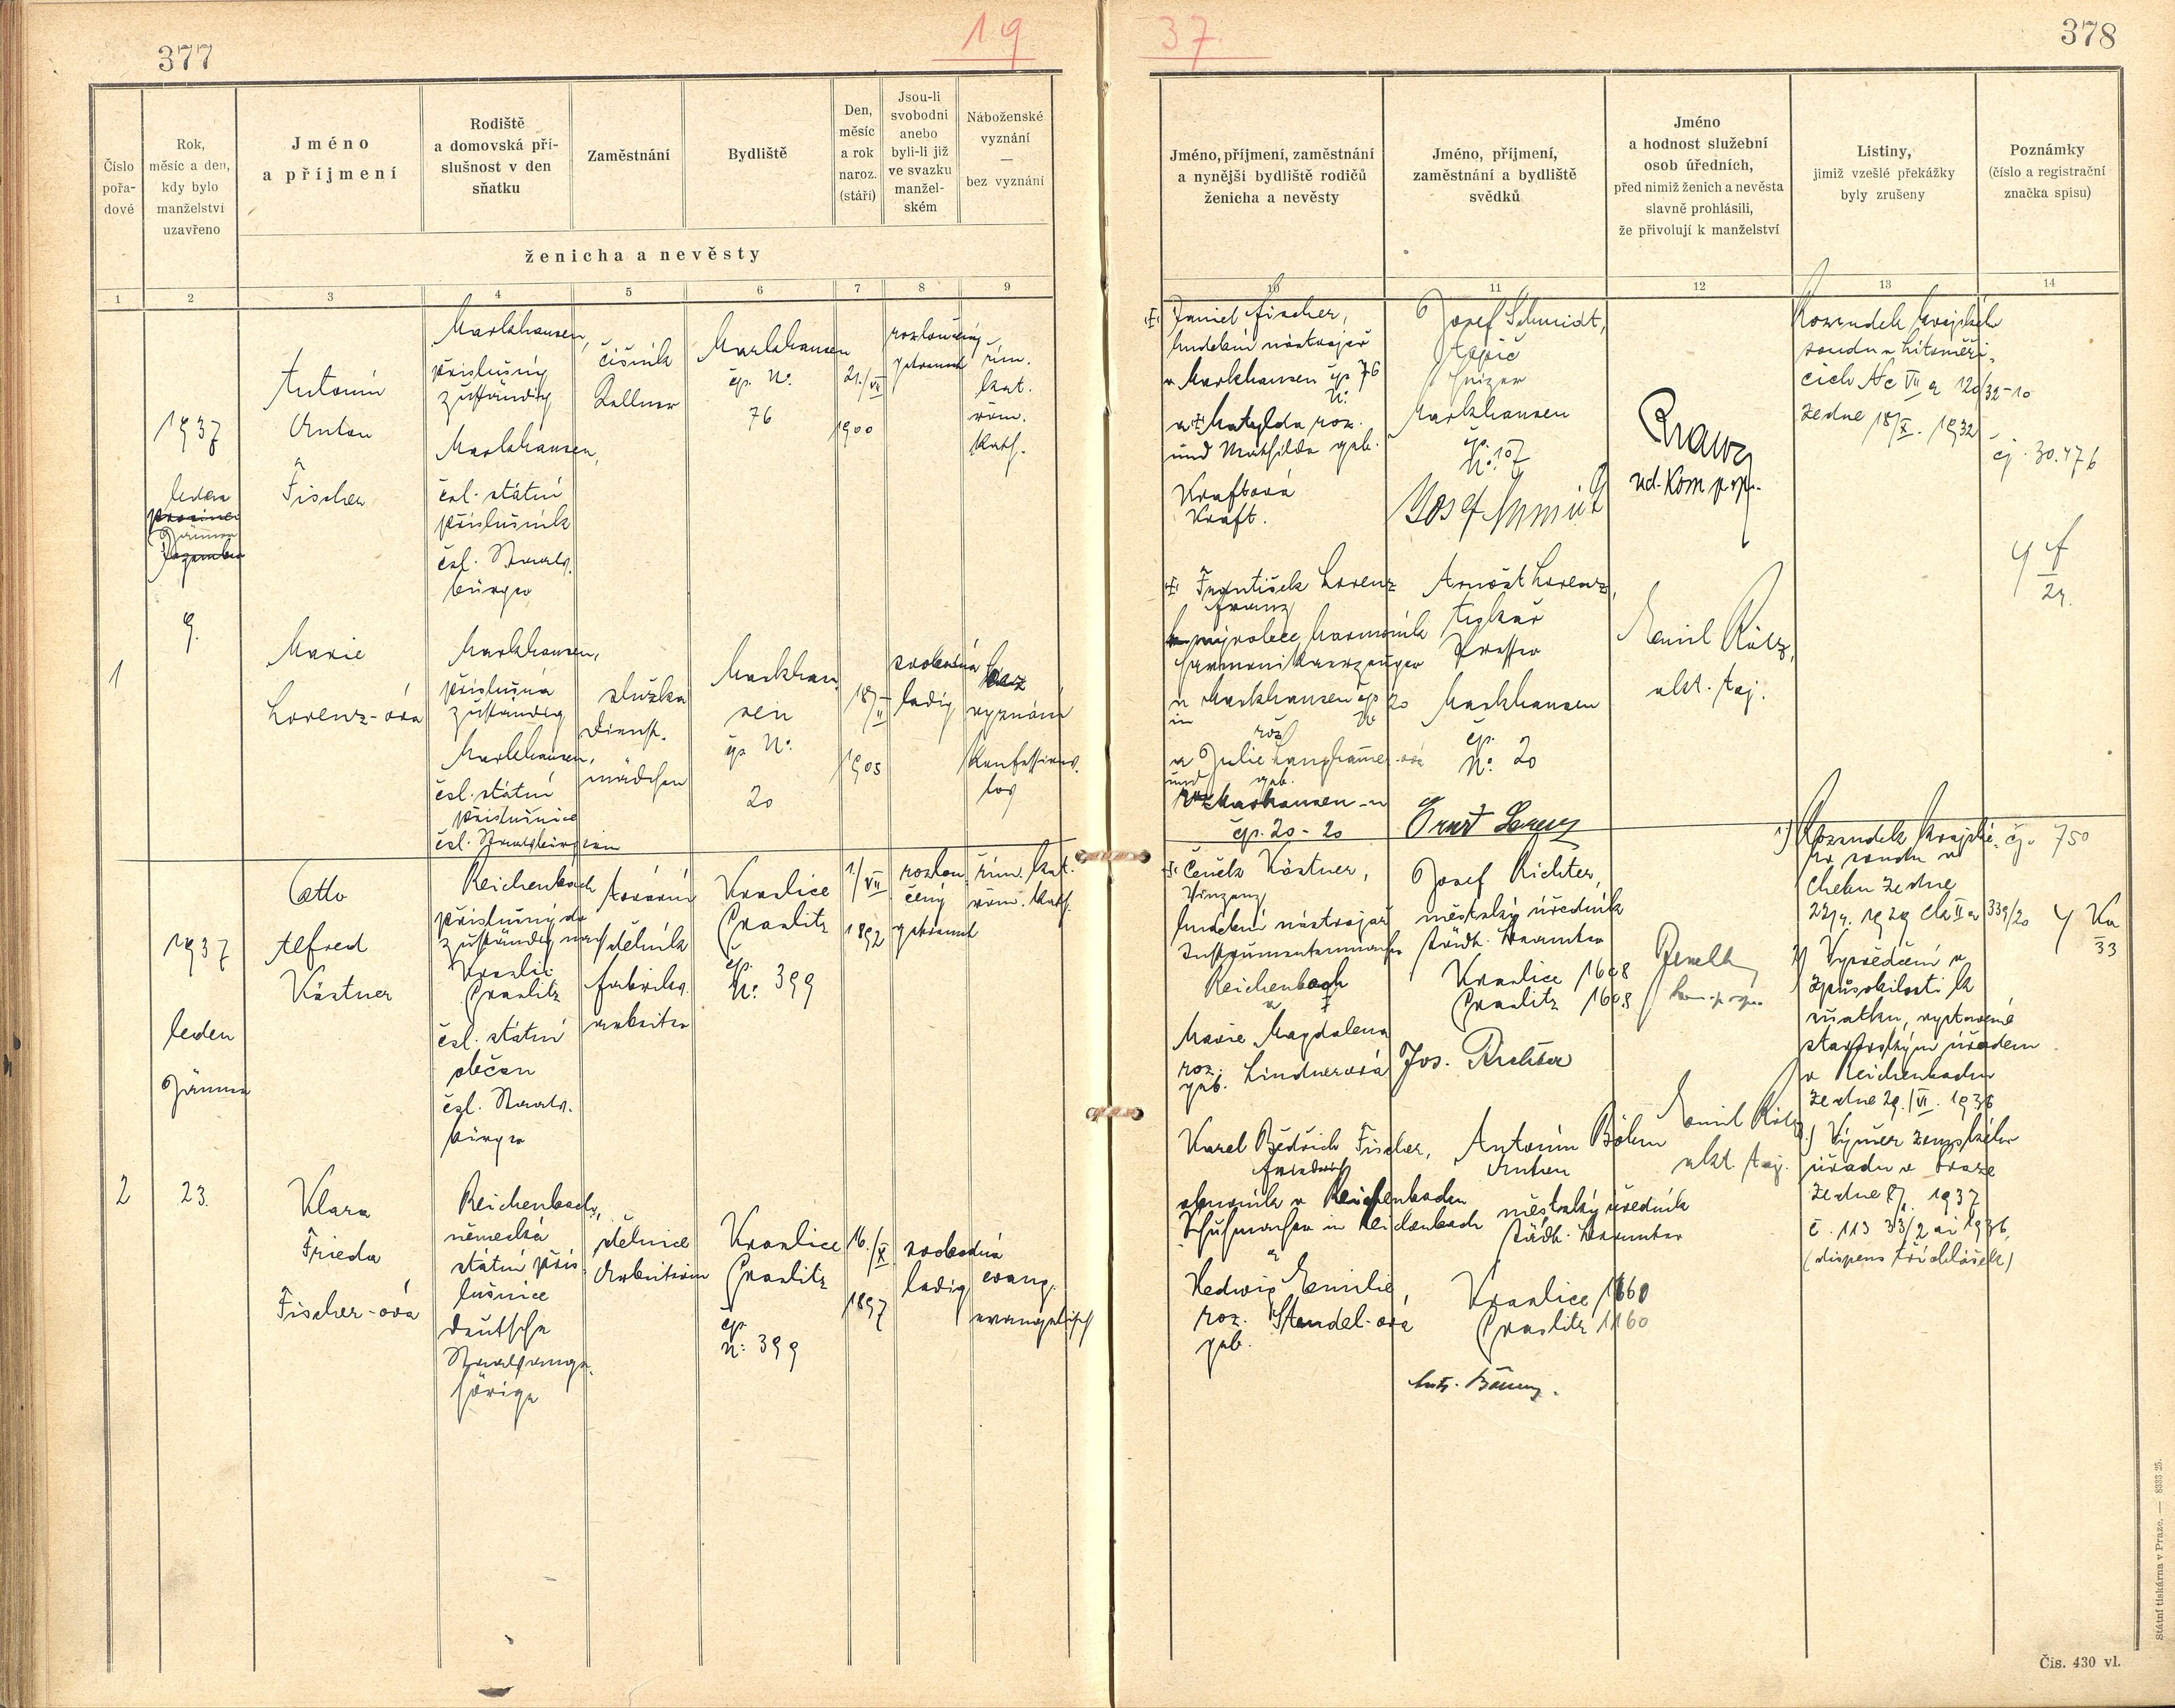 377
19
37
378
Číslo
pořa-
dové
Rok,
měsíc a den,
kdy bylo
manželství
uzavřeno
Jméno
a příjmení
Rodiště
a domovská pří-
slušnost v den
sňatku
Zaměstnání
Bydliště
Den,
měsíc
a rok
naroz.
(stáří)
Jsou-li
svobodni
anebo
byli-li již
ve svazku
manžel-
ském
Náboženské
vyznání
—
bez vyznání
ženicha a nevěsty
Jméno, příjmení, zaměstnání
a nynější bydliště rodičů
ženicha a nevěsty
Jméno, příjmení,
zaměstnání a bydliště
svědků
Jméno
a hodnost služební
osob úředních,
před nimiž ženich a nevěsta
slavně prohlásili,
že přivolují k manželství
Listiny,
jimiž vzešlé překážky
byly zrušeny
Poznámky
(číslo a registrační
značka spisu)
1 2 3 4 5 6 7 8 9
10 11 12 13 14
1
1937
leden
prosinec
Jänner
Dezember
9.
Antonín
Anton
Fischer
Markhausen,
příslušný
zuständig
Markhausen,
čsl. státní
příslušník
čsl. Staats-
bürger
číšník
Kellner
Markhausen
čp. No.
76
21./VII
1900
rozloučený
getrennt
řím.
kat.
röm.
kath.
Marie
Lorenz-ová
Markhausen,
příslušná
zuständig
Markhausen,
čsl. státní
příslušnice
čsl. Staatsbürgerin
služka
Dienst-
mädchen
Markhau-
sen
čp. No.
20
18/II
1905
svobodná
ledig
bez
vyznání
konfessions-
los
Daniel Fischer,
hudební nástrojař
v Markhausen čp 76
No.
a Matylda roz.
und Mathilde geb.
Kraftová
Kraft.
Josef Schmidt,
topič
Heizer
Markhausen
čp.
No. 107
Josef Schmidt
František Lorenz
Franz
výrobce harmonik
Harmonikaerzeuger
v Markhausen čp 20
in No
roz
a Julie Langhamer-ová
und geb.
Markhausen
čp. 20 - 20
Arnošt Lorenz,
Presser
Markhausen
čp.
No. 20
Ernst Lorenz
Emil Rölz,
akt. taj.
Rozsudek krajského
soudu v Litoměři-
cích Nc VII a 120/32-10
ze dne 18/X. 1932
čj. 30.476
2
1937
leden
Jänner
23.
Otto
Alfred
Köstner
Reichenbach
příslušný do
zuständig nach
Kraslic
Graslitz
čsl. státní
občan
čsl. Staats-
bürger
tovární
dělník
Fabriks-
arbeiter
Kraslice
Graslitz
čp.
No. 399
1./VII
1892
rozlou-
čený
getrennt
řím. kat.
röm. kath.
Klara
Frieda
Fischer-ová
Reichenbach,
německá
státní přís-
lušnice
deutsche
Staatsange-
hörige
dělnice
Arbeiterin
Kraslice
Graslitz
čp
No. 399
16./X.
1897
svobodná
ledig
evang.
evangelisch
Čeněk Köstner,
Vinzenz
hudební nástrojař
Instrumentenmacher
Reichenbach
a
Marie Magdalena
roz.
geb. Lindnerová
Josef Richter,
městský úředník
städt. Beamter
Kraslice 1608
Graslitz 1608
Jos. Richter
Karel Bedřich Fischer,
Friedrich
obuvník v Reichenbachu
Schuhmacher in Reichenbach
a
Hedwig Emilie,
roz. Stendel-ová
geb.
Antonín Böhm
Anton
městský úředník
städt. Beamter
Kraslice 1160
Graslitz 1160
Emil Rölz
akt. taj.
1) Rozsudek krajské-
ho soudu v
Chebu ze dne
2) Vysvědčení o
způsobilosti k
sňatku, vystavené
v Reichenbachu
ze dne 29./VI. 1936
3) Výměr zemského
úřadu v Praze
(dispens tří ohlášek)
čj. 750
Státní tiskárna v Praze. — 8333 25.
Čis. 430 vl.